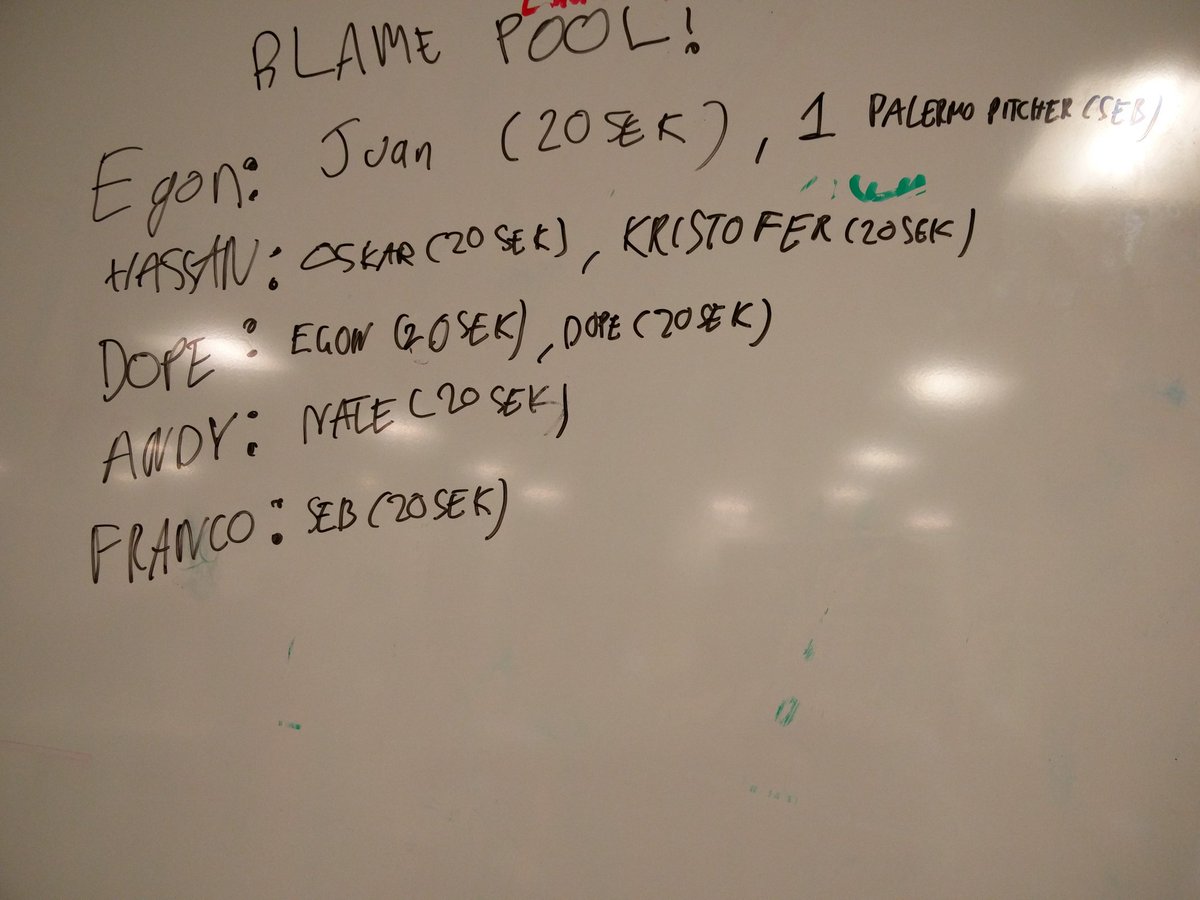 BLAME POOL!
Egon: Juan (20 SEK), 1 PALERMO PITCHER (SEB)
HASSAN: OSKAR (20 SEK), KRISTOFER (20 SEK)
DOPE: EGON (20 SEK), DOPE (20 SEK)
ANDY: NATE (20 SEK)
FRANCO: SEB (20 SEK)